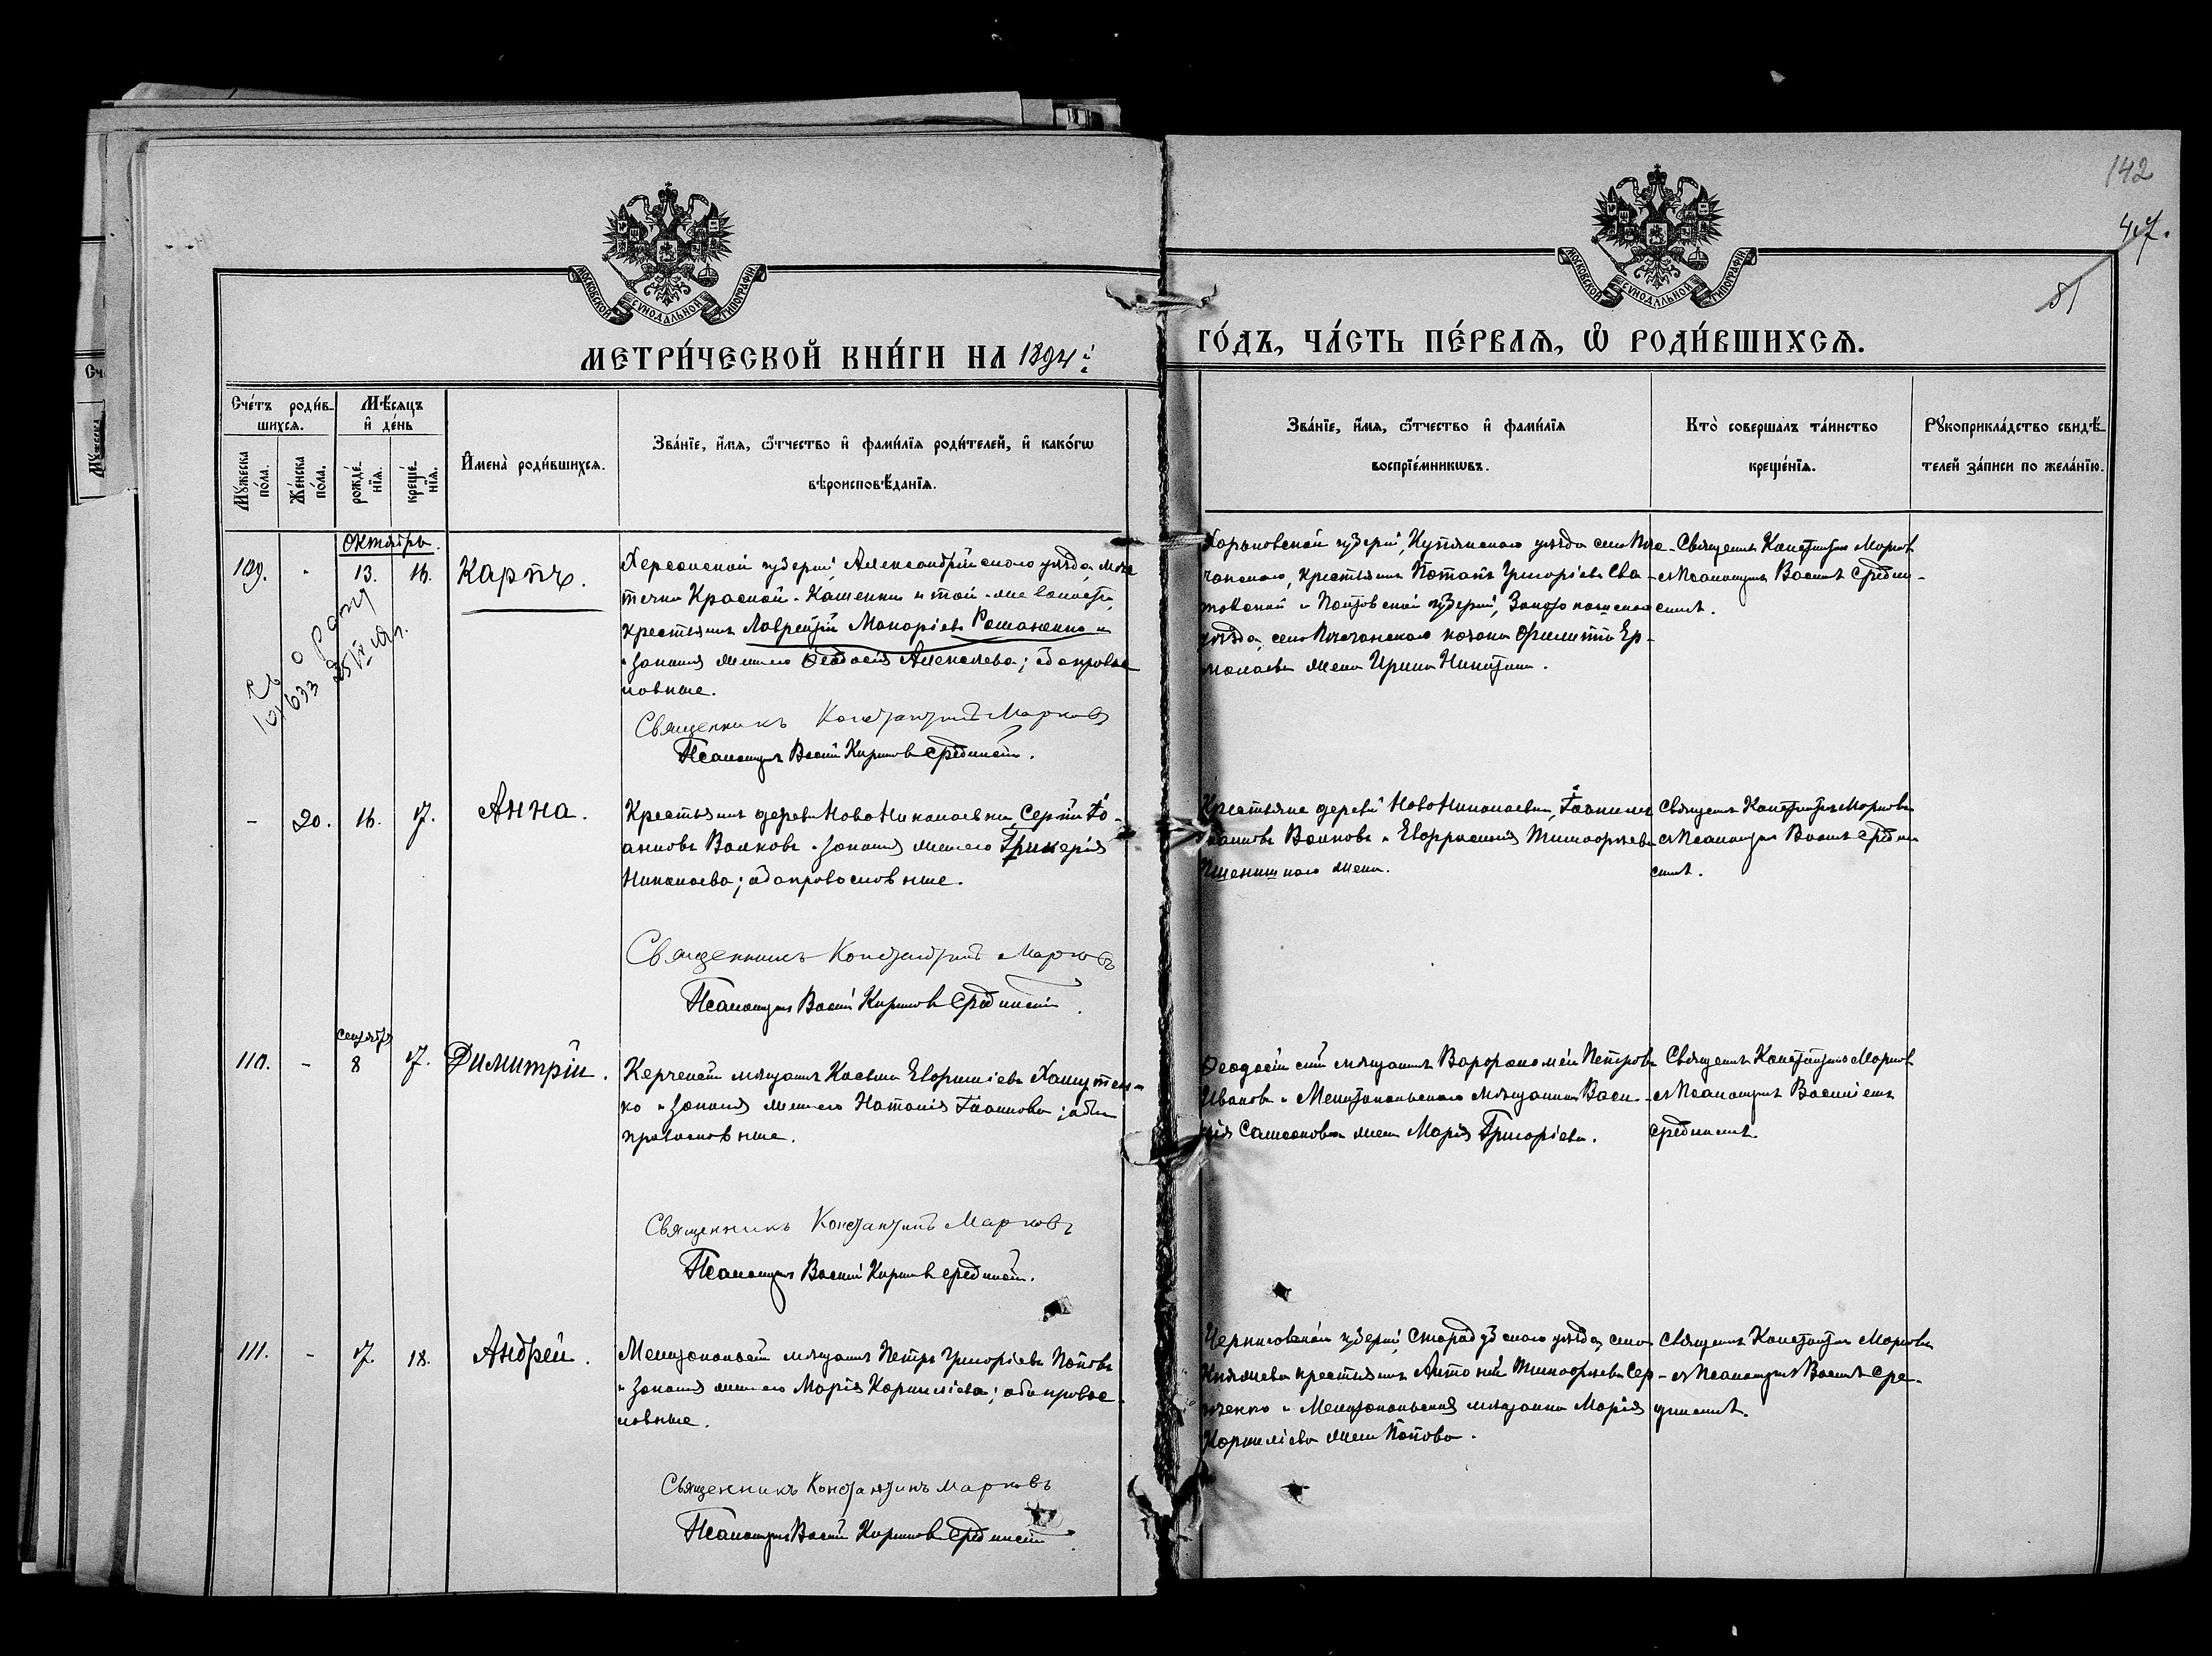 142
47.
МОСКОВСКОЙ СѴНОДАЛЬНОЙ ТИПОГРАФІИ
МОСКОВСКОЙ СѴНОДАЛЬНОЙ ТИПОГРАФІИ
МЕТРИ́ЧЕСКОЙ КНИ́ГИ НА 1894й
ГО́ДЪ, ЧА́СТЬ ПЕ́РВАѦ, Ѡ҆ РОДИ́ВШИХСѦ.
Сче́тъ роди́в-
шихсѧ.
Мꙋ́жеска по́ла.
Же́нска по́ла.
Мѣ́сѧцъ и҆ де́нь
рожде́-нїѧ.
креще́-нїѧ.
И҆мена̀ роди́вшихсѧ.
Зва́нїе, и҆́мѧ, ѻ҆́тчество и҆ фами́лїѧ роди́телей, и҆ како́гѡ
вѣроисповѣ́данїѧ.
Зва́нїе, и҆́мѧ, ѻ҆́тчество и҆ фами́лїѧ
воспрїе́мникѡвъ.
Кто̀ совершалъ та́инство
креще́нїѧ.
Рꙋкоприкла́дство свидѣ́-
телей за́писи по жела́нїю.
Октябрь.
109. - 13. 16. Карпъ.
Херсонской губерніи, Александрійскаго уѣзда, мѣс
течка Красной-Каменки и той-же волости,
крестьянинъ Лаврентій Макаріевъ Романенко и
законная жена его Ѳеодосія Алексѣева; оба правос
лавные.
Священникъ Константинъ Марковъ
Псаломщикъ Василій Кириловъ Срединскій.
Харьковской губерніи, Купянскаго уѣзда села
крестьянинъ Потапъ Григорьевъ
и Полтавской губерніи,
уѣзда, села Песчанскаго козака Филиппа Ер-
молаева жена Ирина Никитина.
Священникъ Константинъ Марковъ
съ Псаломщикомъ Василіемъ Средин-
скимъ.
- 20. 16. 17. Анна.
Крестьянинъ деревни НовоНиколаевки, Сергій Іо-
анновъ Волковъ и законная жена его Гликерія
Николаева; оба православные.
Священникъ Константинъ Марковъ
Псаломщикъ Василій Кириловъ Срединскій.
Крестьяне деревни НовоНиколаевки, Іоаннъ
Іоанновъ Волковъ и Евфросинія Тимофѣева
жена.
Священникъ Константинъ Марковъ
съ Псаломщикомъ Василіемъ Средин
скимъ.
сентября
110. - 8 17. Димитрій.
Керченскій мѣщанинъ Косьма Евфиміевъ
ко и законная жена его Наталія Іоаннова; оба
православные.
Священникъ Константинъ Марковъ
Псаломщикъ Василій Кириловъ Срединскій.
Ѳеодосійскій мѣщанинъ Варфоломей Петровъ
Ивановъ и Мелитопольскаго мѣщанина Васи-
лія Самсонова жена Марія Григоріева.
Священникъ Константинъ Марковъ
съ Псаломщикомъ Василіемъ
Срединскимъ.
111. - 17. 18. Андрей.
Мелитопольскій мѣщанинъ Петръ Григоріевъ Поповъ
и законная жена его Марія Корниліева; оба правос-
лавные.
Священникъ Константинъ Марковъ
Псаломщикъ Василій Кириловъ Срединскій.
Черниговской губерніи, Стародубскаго уѣзда, села
крестьянинъ Антоній Тимофѣевъ Сер-
и Мелитопольская мѣщанка Марія
Корниліева жена Попова.
Священникъ Константинъ Марковъ
съ Псаломщикомъ Василіемъ Сре-
динскимъ.